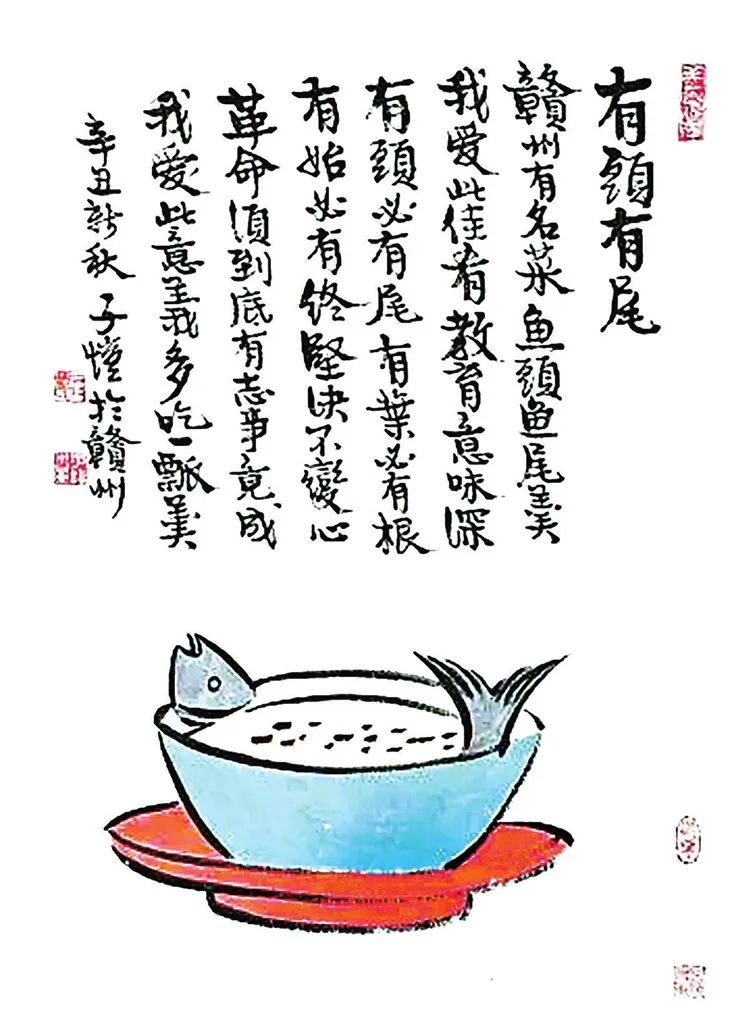 有頭有尾
贛州有名菜魚頭魚尾羹
我愛此佳肴教育意味深
有頭必有尾有葉必有根
有始必有終堅決不變心
革命須到底有志事竟成
我愛此意義多吃一瓢羹
辛丑新秋子愷於贛州